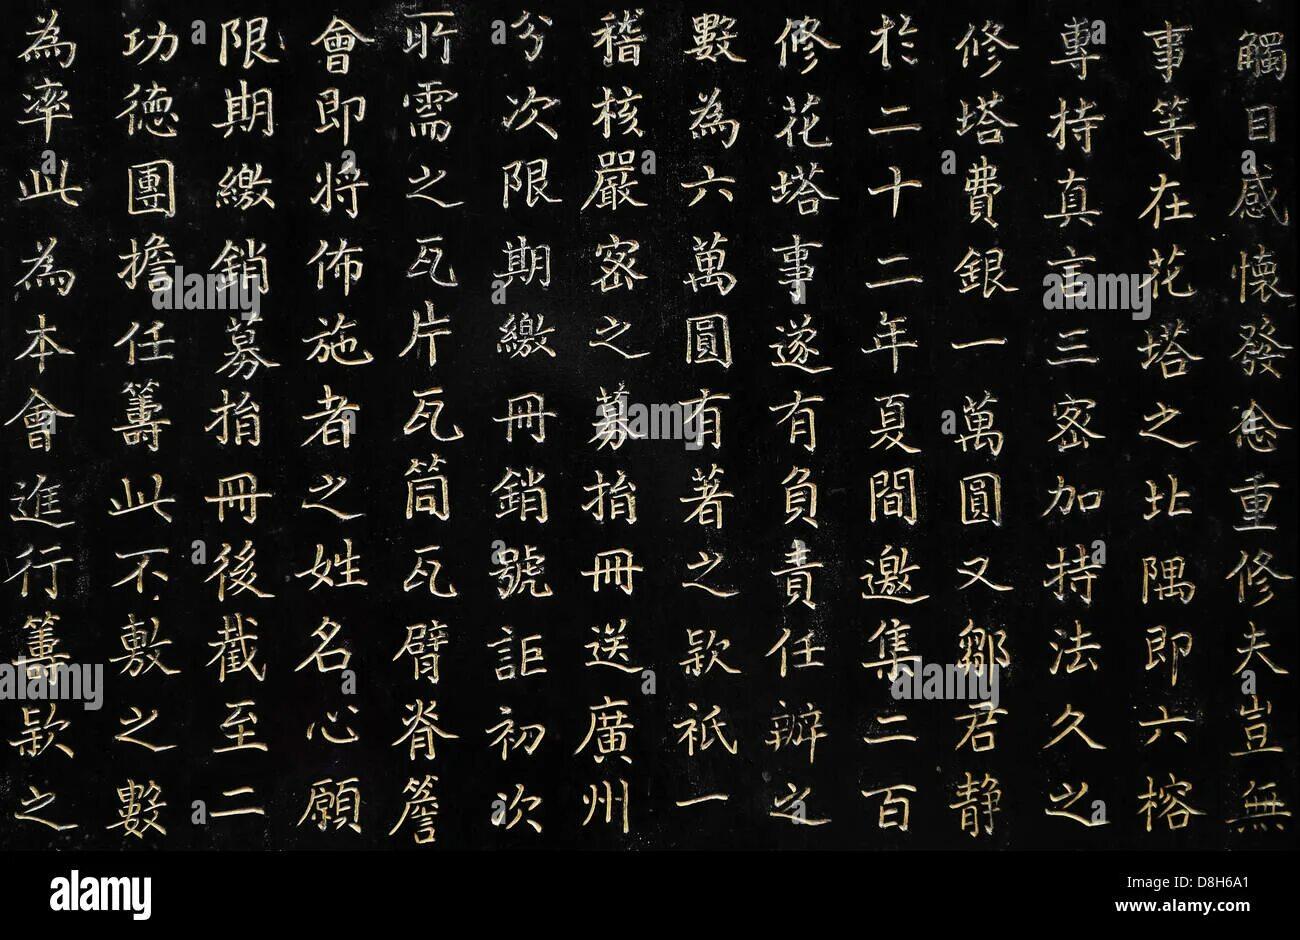 觸目感懷發念重修夫豈無
事等在花塔之北隅即六榕
專持真言三密加持法久之
修塔費銀一萬圓又鄒君靜
於二十二年夏間邀集二百
修花塔事遂有負責任辦之
數為六萬圓有著之款祇一
稽核嚴密之募捐冊送廣州
分次限期繳冊銷號詎初次
所需之瓦片瓦筒瓦臂脊簷
會即將佈施者之姓名心願
限期繳銷募捐冊後截至二
功德團擔任籌此不敷之數
為率此為本會進行籌款之
alamy
Image ID: D8H6A1
www.alamy.com